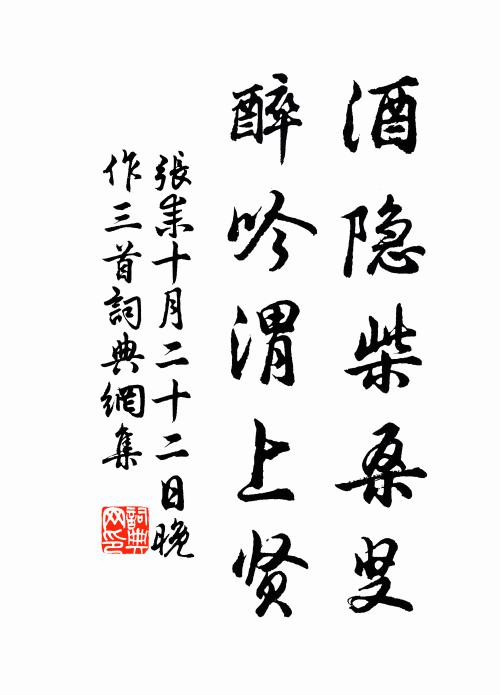 酒隐柴桑叟
醉吟渭上贤
張耒十月二十二日晚
作三首詞典網集
詞典
网印